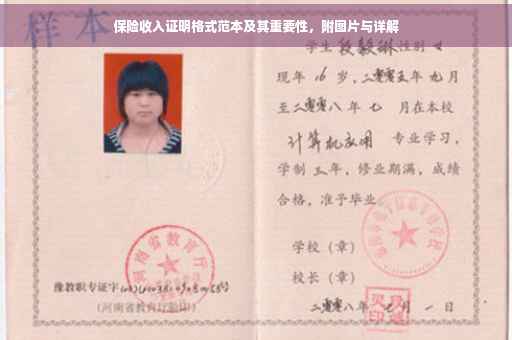 保险收入证明格式范本及其重要性，附图片与详解
样本
学生段毅琳性别女
现年16岁，二零零五年九月
至二零零八年七月在本校
计算机应用专业学习，
学制三年，修业期满，成绩
合格，准予毕业。
学校（章）
校长（章）
二零零八年七月一日
河南省教育厅
豫教职专证字
(河南省教育厅验印)